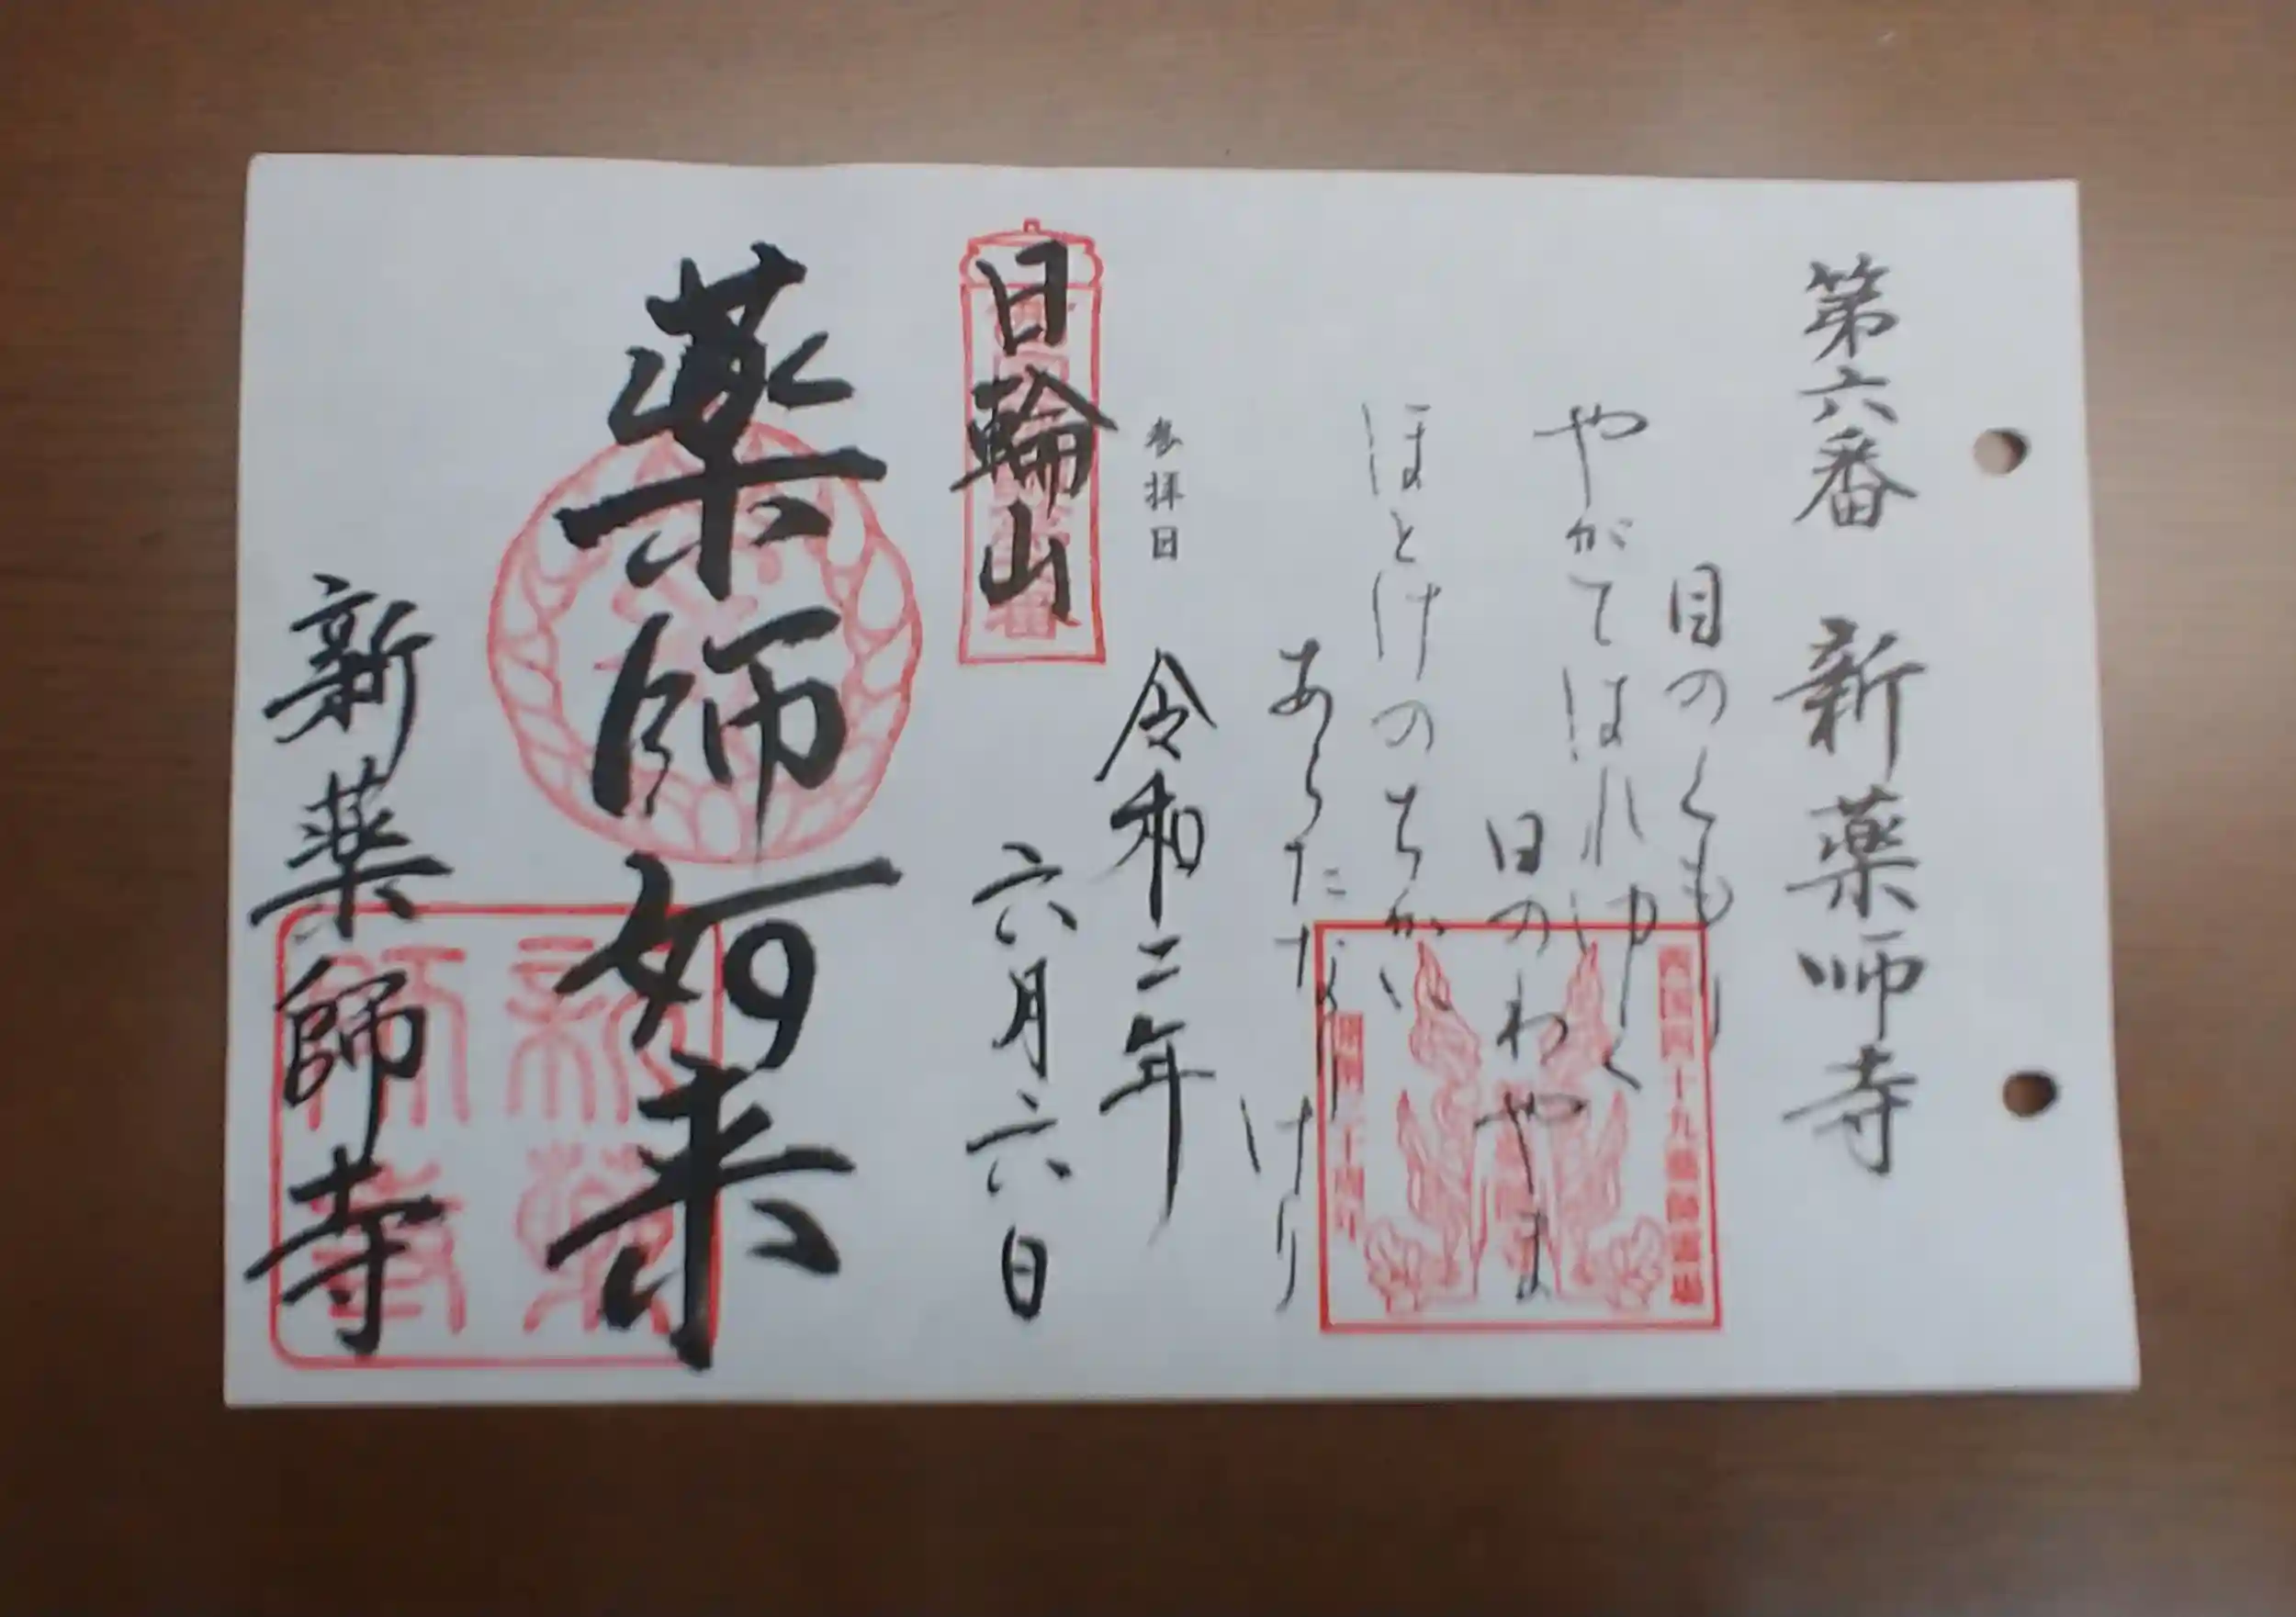 第六番 新薬師寺
目のくもり
やがてはれゆく
日のわやま
ほとけのちかい
あらたなり
けり
参拝日
令和二年
六月六日
日輪山
薬師如来
新薬師寺
西国四十九薬師霊場